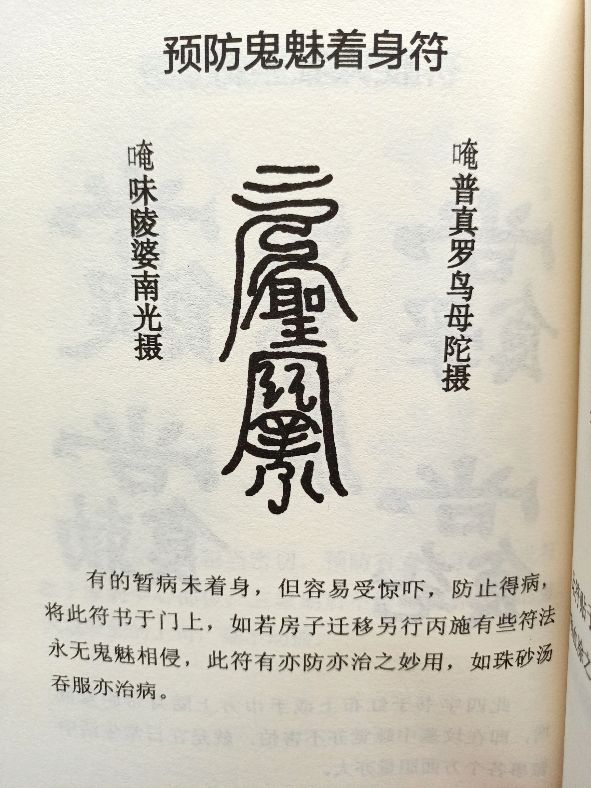 预防鬼魅着身符
唵普真罗鸟母陀摄
唵味陵婆南光摄
有的暂病未着身，但容易受惊吓，防止得病，
将此符书于门上，如若房子迁移另行丙施有些符法
永无鬼魅相侵，此符有亦防亦治之妙用，如珠砂汤
吞服亦治病。